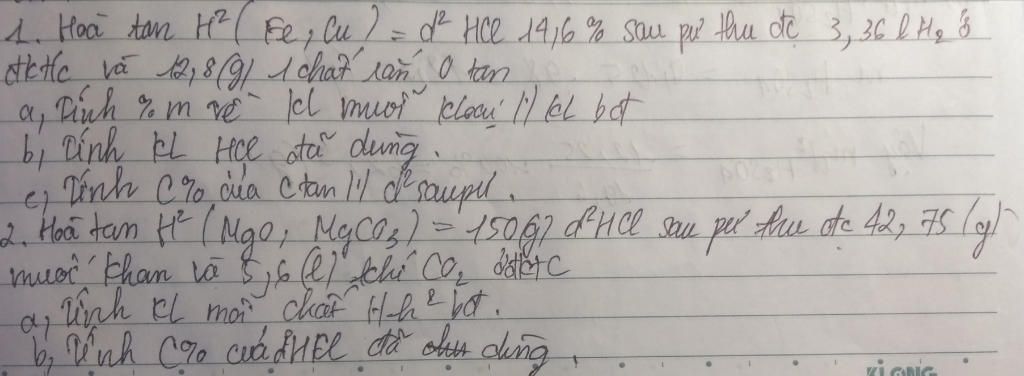 1. Hoà tan H² (Fe, Cu) = d² HCl 14,6% sau pư thu đc 3,36 l H₂ ở
đktc và 12,8 (g) 1 chất rắn 0 tan
a, Tính % m về kl muối kloại // kl bđ
b, Tính KL HCl đã dùng.
c, Tính C% của ctan // d² saupư.
2. Hoà tan H² (MgO, MgCO₃) = 150(g) d² HCl sau pư thu đc 42,75 (g)
muối khan và 5,6 (l) khí CO₂ ở đktc
a, Tính KL mỗi chất H-h² bđ.
b, Tính C% của d² HCl đã dùng.
KLONG